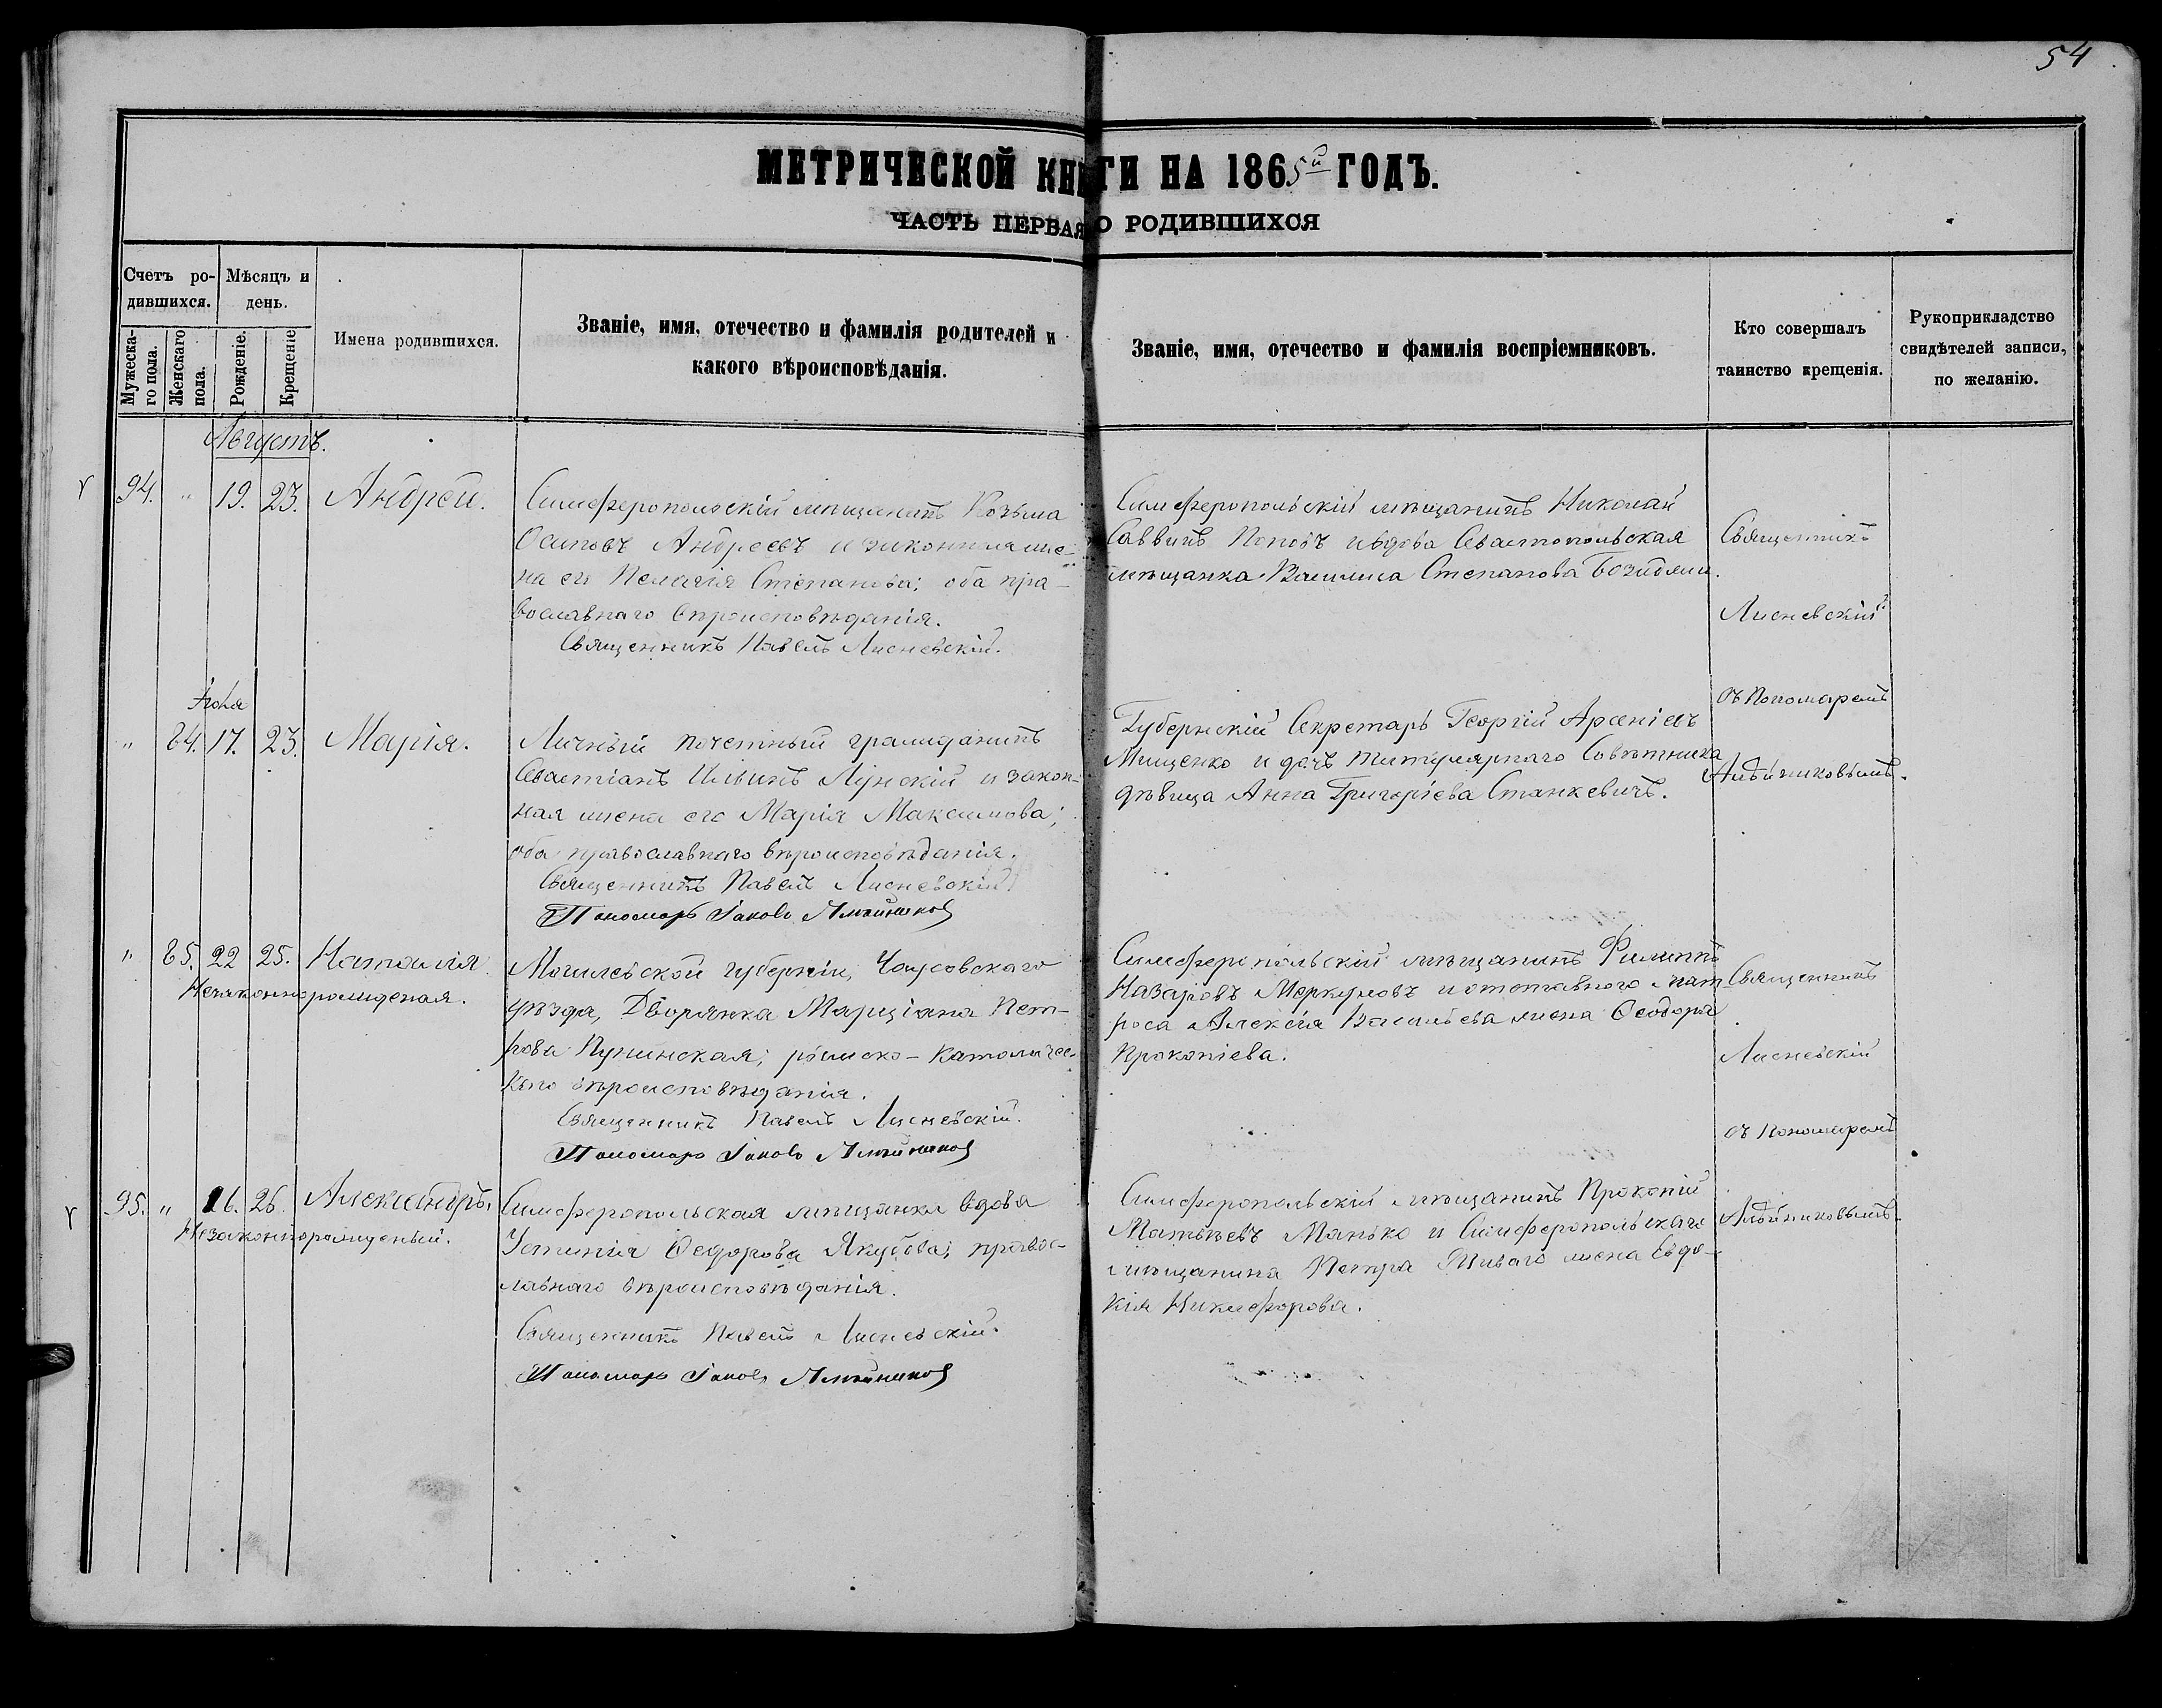 54
МЕТРИЧЕСКОЙ КНИГИ НА 1865й ГОДЪ.
ЧАСТЬ ПЕРВАЯ О РОДИВШИХСЯ
Счетъ ро-
дившихся.
Мужеска-
го пола.
Женскаго
пола.
Мѣсяцъ и
день.
Рожденіе.
Крещеніе
Имена родившихся.
Званіе, имя, отечество и фамилія родителей и
какого вѣроисповѣданія.
Званіе, имя, отечество и фамилія воспріемниковъ.
Кто совершалъ
таинство крещенія.
Рукоприкладство
свидѣтелей записи,
по желанію.
Августъ.
94. " 19. 23. Андрей.
Симферопольскій мѣщанинъ Козьма
Осиповъ Андреевъ и законная же-
на его Пелагія Степанова; оба пра-
вославнаго вѣроисповѣданія.
Священникъ Павелъ Лисневскій.
Симферопольскій мѣщанинъ Николай
Саввинъ Поповъ и вдова Севастопольская
мѣщанка Степанова
Священникъ
Лисневскій
съ Пономаремъ
Іюля
" 84. 17. 23. Марія.
Личный почетный гражданинъ
Севастіанъ Ильинъ и закон-
ная жена его Марія Максимова;
оба православнаго вѣроисповѣданія.
Священникъ Павелъ Лисневскій
Пономарь Іаковъ
Губернскій Секретарь Георгій Арсеніевъ
Мищенко и дочь титулярнаго Совѣтника
дѣвица Анна Григоріева Станкевичъ.
" 85. 22 25. Наталія.
Незаконнорожденая.
Могилевской губерніи, Чаусовскаго
уѣзда, Дворянка Марціана Пет-
рова Пунинская; римско-католичес-
каго вѣроисповѣданія.
Священникъ Павелъ Лисневскій.
Пономарь Іаковъ
Симферопольскій мѣщанинъ Филиппъ
Назаровъ Меркуловъ и отставного мат
роса Алексѣя Васильева жена Ѳеодора
Прокопіева.
Священникъ
Лисневскій
съ Пономаремъ
95. " 16. 26. Александръ.
Незаконнорожденый.
Симферопольская мѣщанка вдова
Устинія Ѳедорова Якубова; правос-
лавнаго вѣроисповѣданія.
Священникъ Павелъ Лисневскій.
Пономарь Іаковъ
Симферопольскій мѣщанинъ Прокопій
Матвѣевъ Манько и Симферопольскаго
мѣщанина Петра жена Евдо-
кія Никифорова.